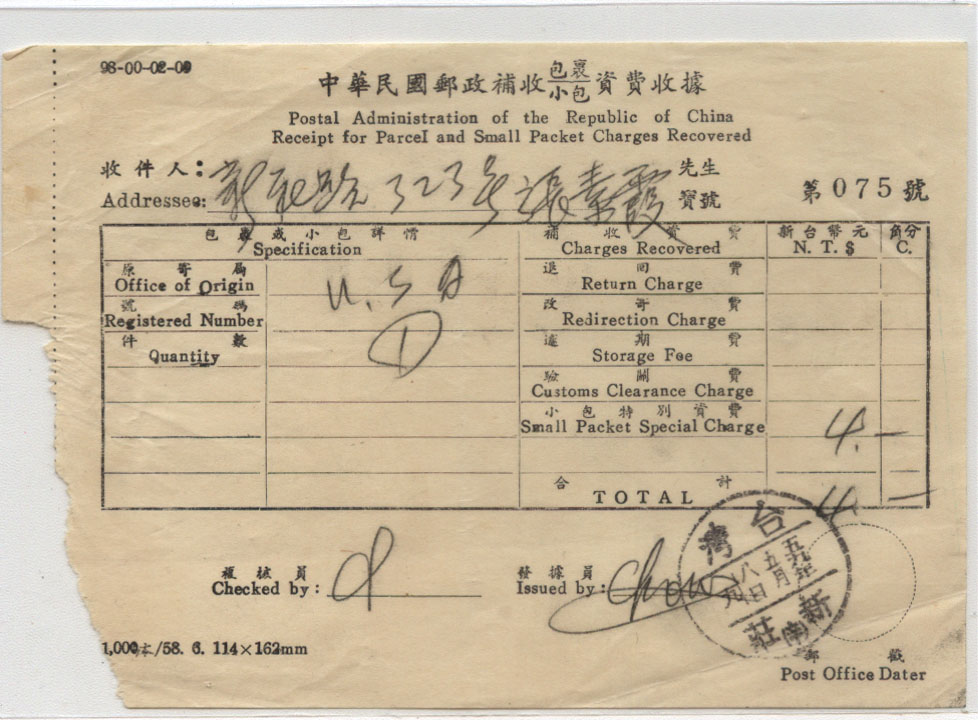 98-00-02-00
中華民國郵政補收包裹小包資費收據
Postal Administration of the Republic of China
Receipt for Parcel and Small Packet Charges Recovered
收件人：
323号張素霞
先生
Addressee:
寶號
第075號
包裹或小包詳情
Specification
補收資費
Charges Recovered
新台幣元
N. T. $
角分
C.
原寄局
Office of Origin
U.S.A
退回費
Return Charge
號碼
Registered Number
改寄費
Redirection Charge
件數
Quantity
1
逾期費
Storage Fee
驗關費
Customs Clearance Charge
小包特別資費
Small Packet Special Charge
4.—
合計
TOTAL
4.—
Checked by:
發據員
Issued by:
Chow
台灣
五九年
五月
八日
新莊
(南)
郵戳
Post Office Dater
1,000本/58. 6. 114×162mm